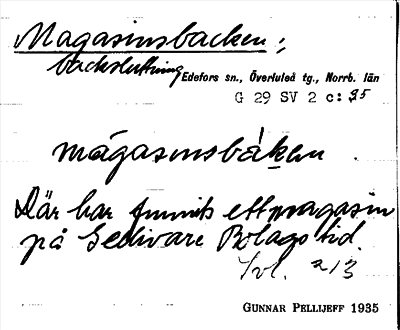 Magasinsbacken;
backsluttning Edefors sn., Överluleå tg., Norrb. län
G 29 SV 2 c: 35
màgasinsbàken
Där har funnits ett magasin
på Gellivare Bolags tid.
a/3
GUNNAR PELLIJEFF 1935